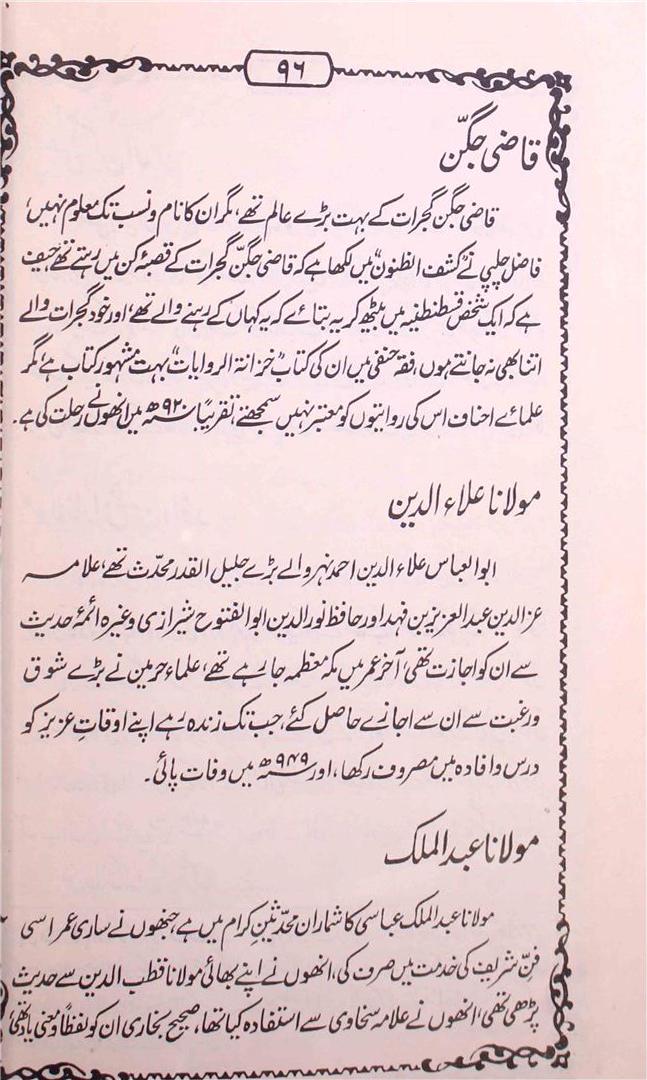 ۹۶
قاضی جگن
قاضی جگن گجرات کے بہت بڑے عالم تھے، مگر ان کا نام و نسب تک معلوم نہیں،
فاضل چلپی نے "کشف الظنون" میں لکھا ہے کہ قاضی جگن گجرات کے قصبۂ کن میں رہتے تھے، حیف
ہے کہ ایک شخص قسطنطنیہ میں بیٹھ کر یہ بتائے کہ یہ کہاں کے رہنے والے تھے، اور خود گجرات والے
اتنا بھی نہ جانتے ہوں، فقہ حنفی میں ان کی کتاب "خزانۃ الروایات" بہت مشہور کتاب ہے، مگر
علمائے احناف اس کی روایتوں کو معتبر نہیں سمجھتے، تقریباً ۹۲۰ھ میں انھوں نے رحلت کی ہے۔
مولانا علاء الدین
ابوالعباس علاء الدین احمد نہر والے بڑے جلیل القدر محدّث تھے، علامہ
عزالدین عبدالعزیز بن فہد اور حافظ نورالدین ابوالفتوح شیرازی وغیرہ ائمۂ حدیث
سے ان کو اجازت تھی، آخر عمر میں مکہ معظمہ جا رہے تھے، علماء حرمین نے بڑے شوق
ورغبت سے ان سے اجازے حاصل کئے، جب تک زندہ رہے اپنے اوقاتِ عزیز کو
درس وافادہ میں مصروف رکھا، اور ۹۴۹ھ میں وفات پائی۔
مولانا عبدالملک
مولانا عبدالملک عباسی کا شمار ان محدّثینِ کرام میں ہے، جنھوں نے ساری عمر اسی
فنِّ شریف کی خدمت میں صرف کی، انھوں نے اپنے بھائی مولانا قطب الدین سے حدیث
پڑھی تھی، انھوں نے علامہ سخاوی سے استفادہ کیا تھا، صحیح بخاری ان کو لفظاً و معنی یاد تھی،